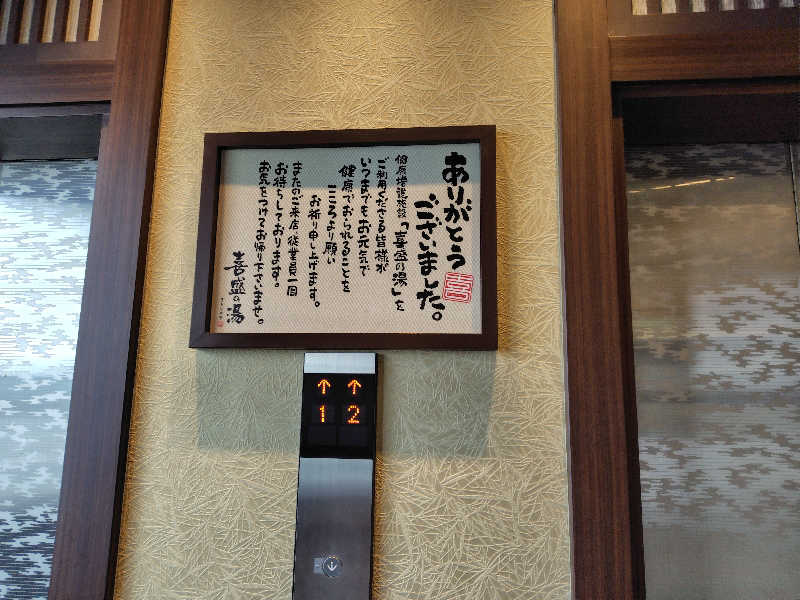 ありがとう
ございました。
喜
健康増進施設「喜盛の湯」を
ご利用くださる皆様が
いつまでもお元気で
健康でおられることを
こころより願い
お祈り申し上げます。
またのご来店、従業員一同
お待ちしております。
お気をつけてお帰り下さいませ。
喜盛の湯
↑ ↑
1 2